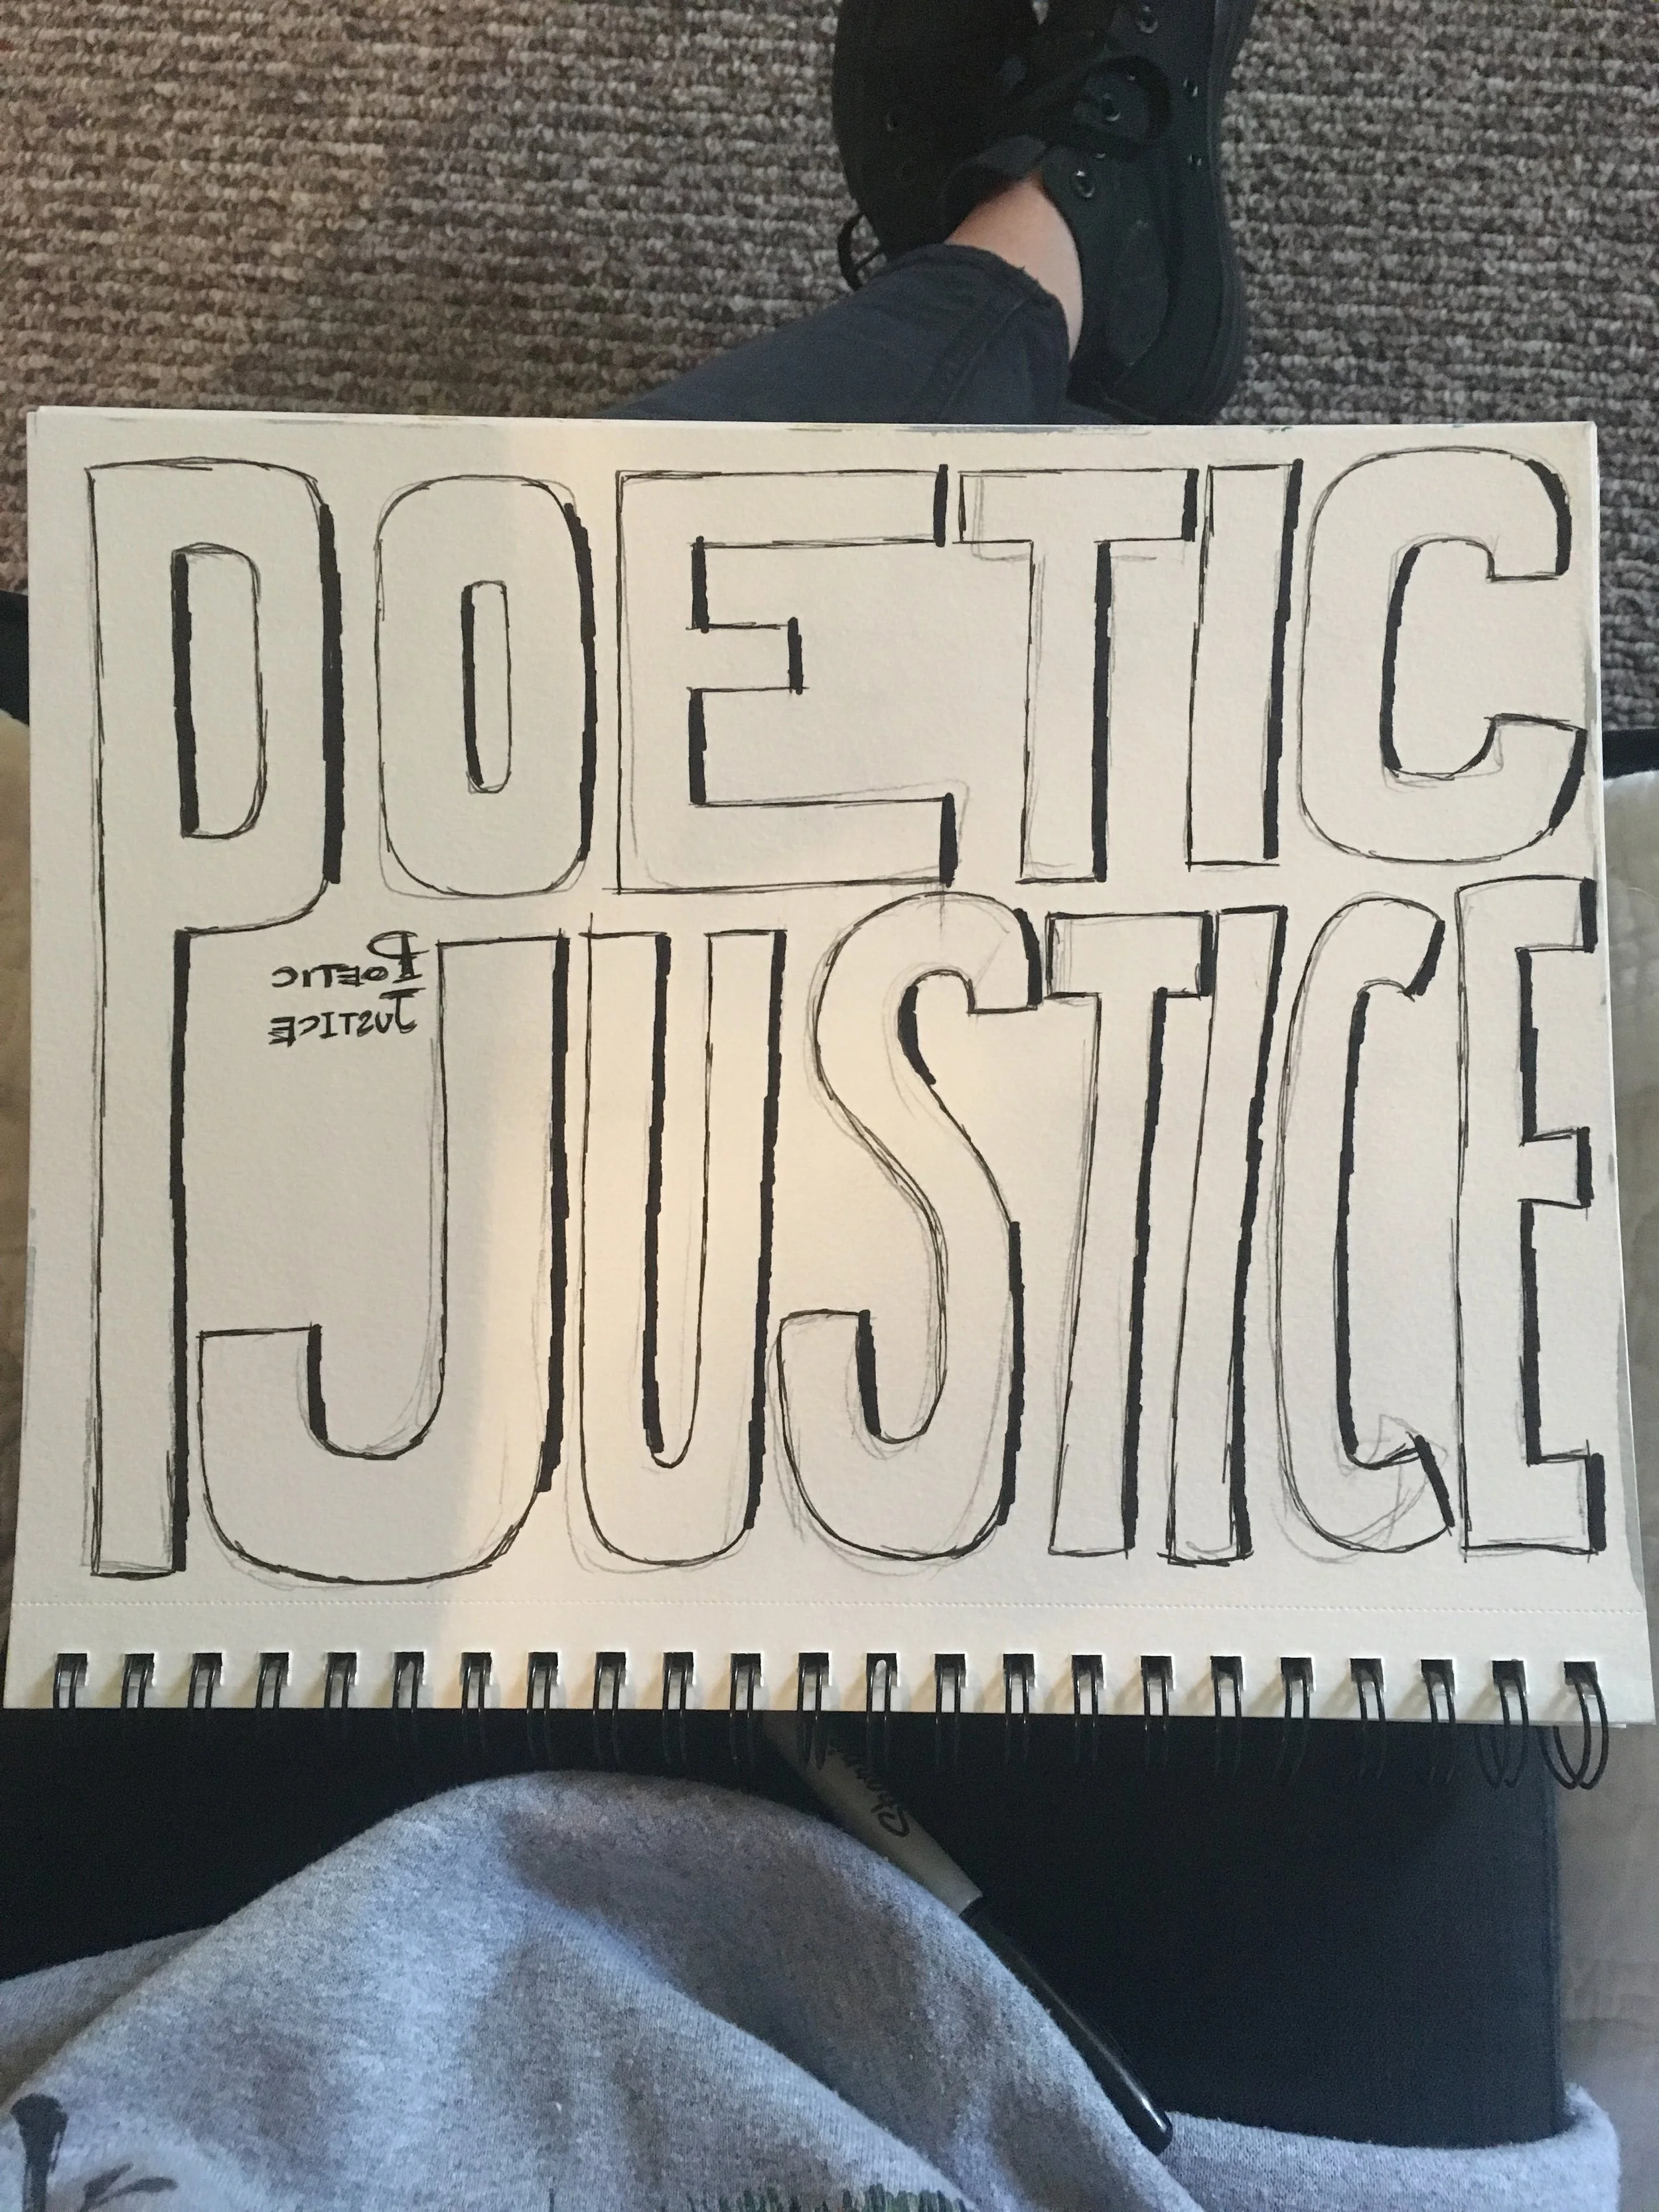 POETIC
JUSTICE
POETIC
JUSTICE
Sharpie